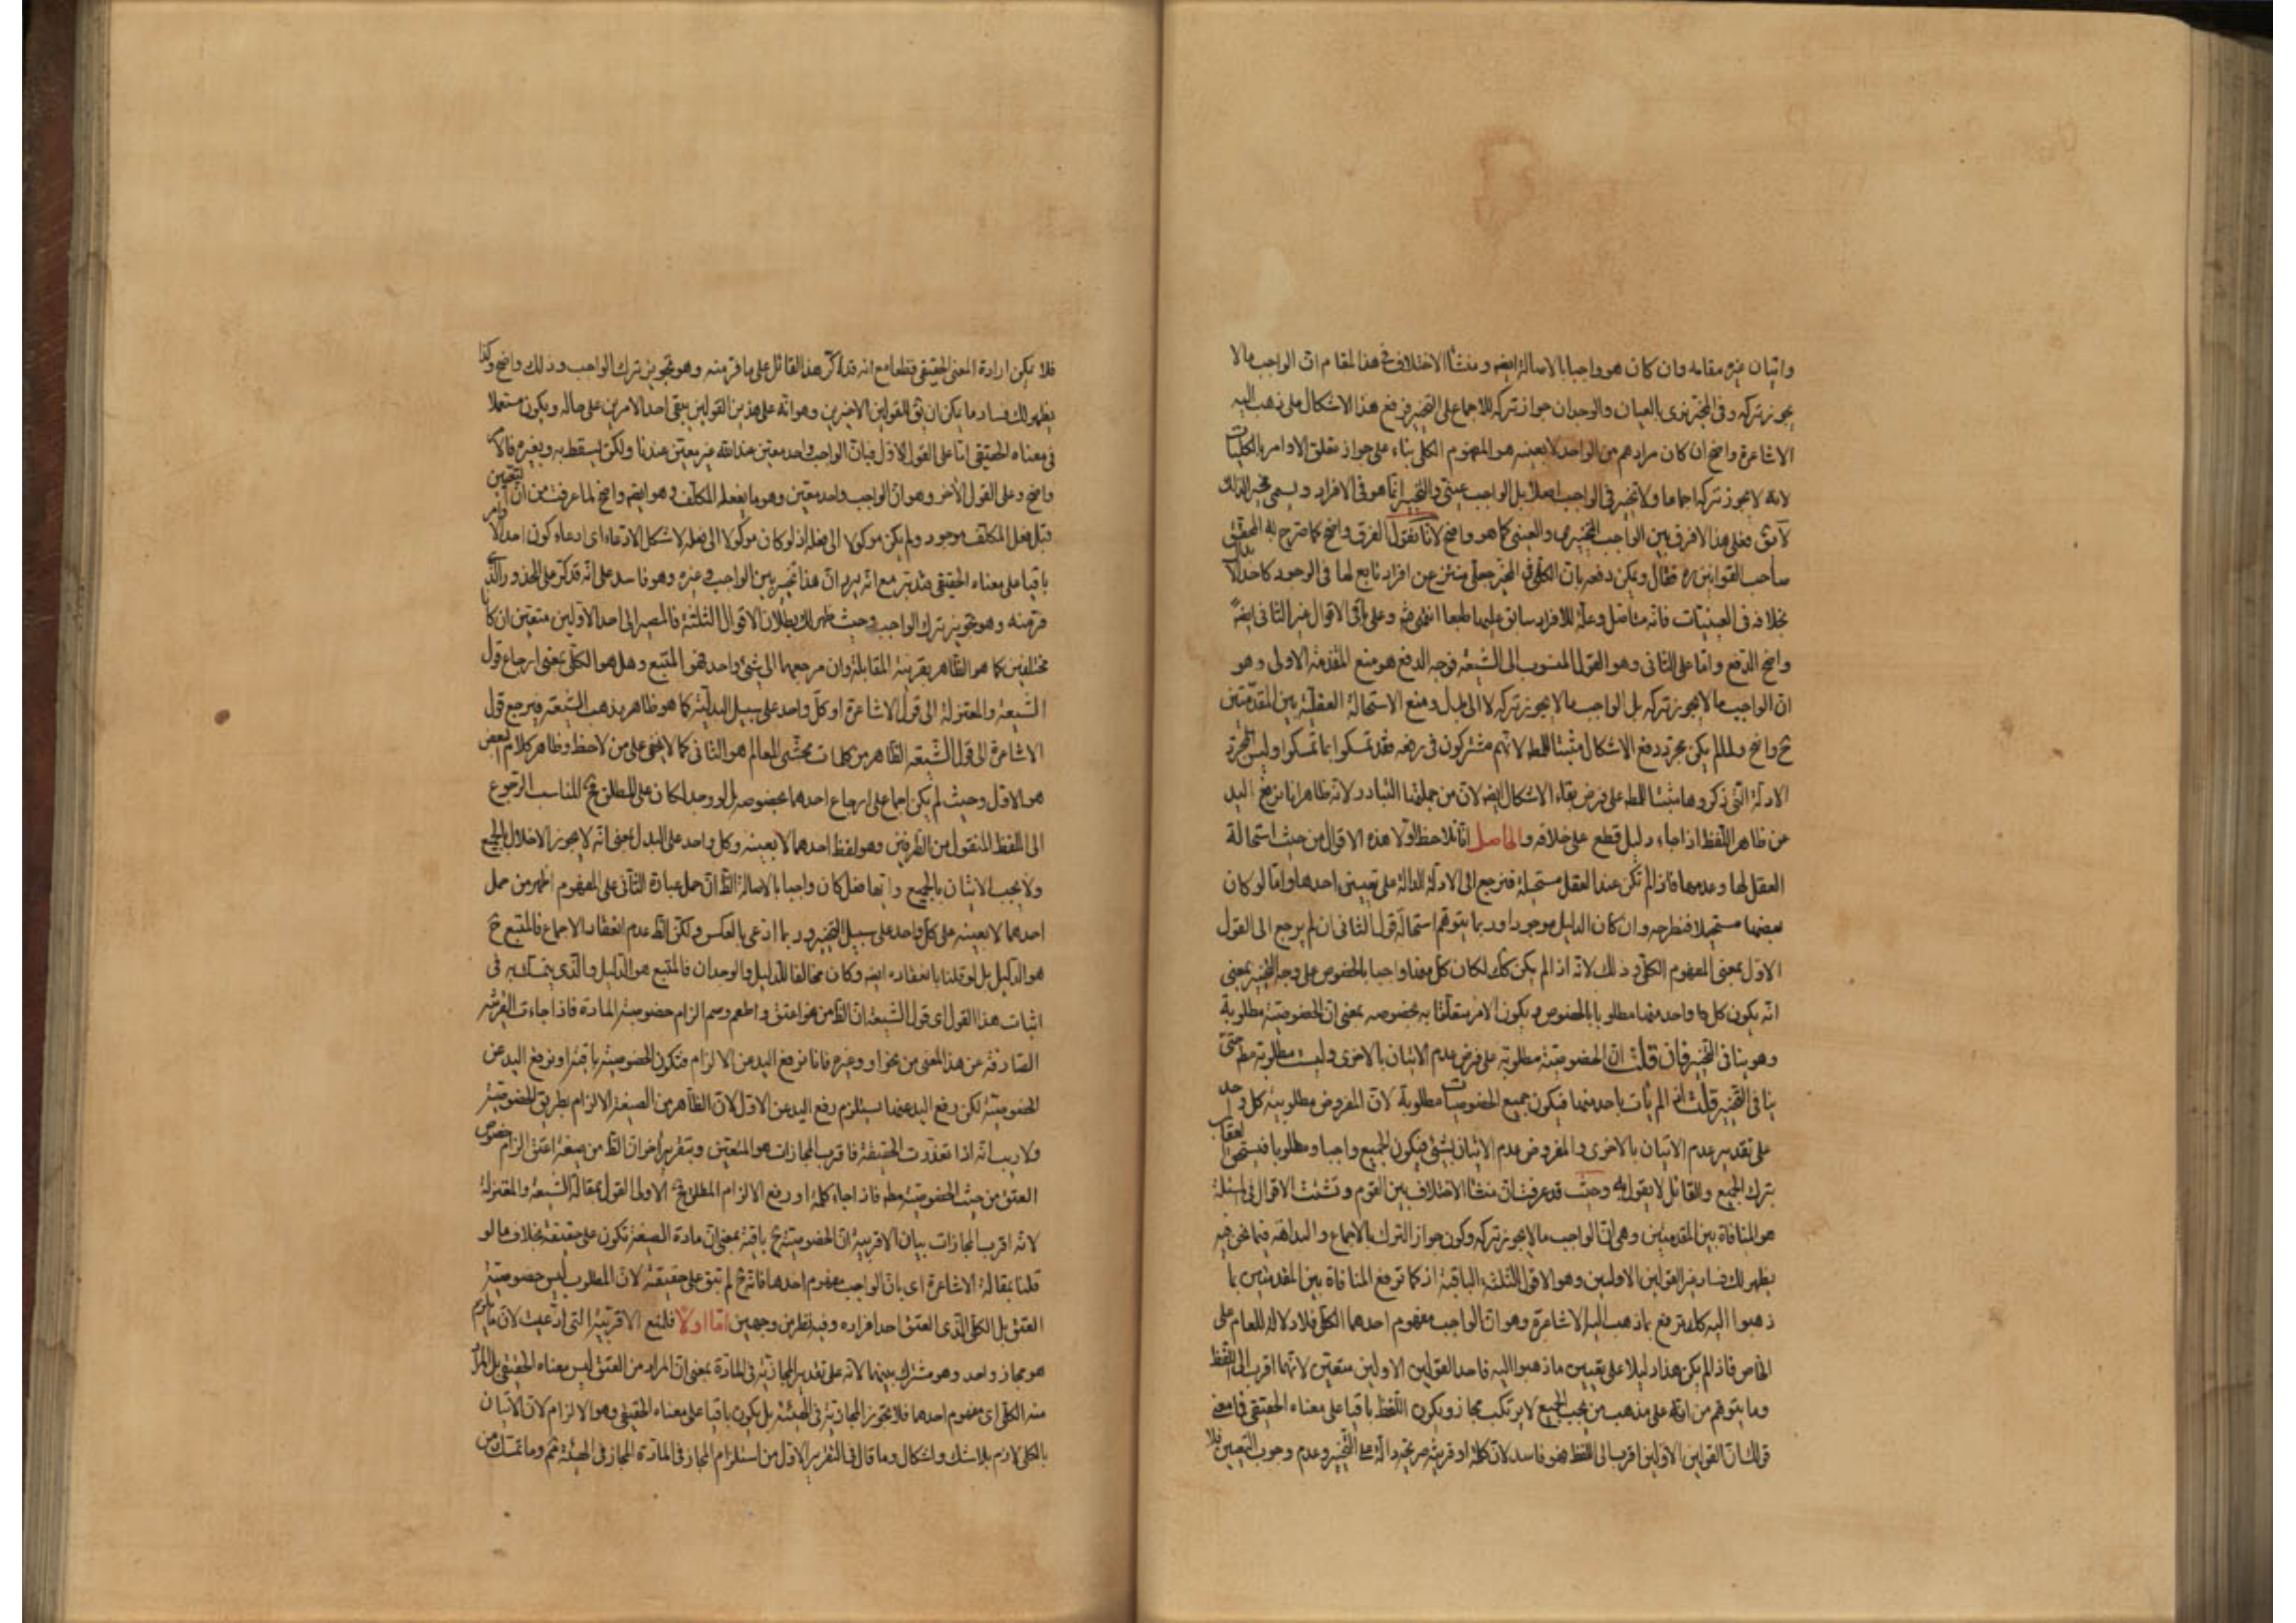 واتيان غيره مقامه وان كان هو واجبا بالاصالة ايضا ومنشأ الاختلاف فى هذا المقام ان الواجب ما لا
يجوز تركه وفى المخير نرى بالعيان والوجدان جواز تركه للاجماع على التخيير فرفع هذا الاشكال على مذهب اليه
الاشاعرة واضح ان كان مرادهم من الواحد لا بعينه هو المفهوم الكلى بناء على جواز تعلق الاوامر بالكليات
لانه لا يجوز تركه اجماعا ولا تخيير فى الواجب اصلا بل الواجب عينى والتخيير انما هو فى الافراد ويسمى مخيرا لذلك
لا يق فعلى هذا لا فرق بين الواجب التخييرى والعينى كما هو واضح لانا نقول الفرق واضح كما صرح به المحقق
صاحب القوانين ره فقال ويمكن دفعه بان الكلى فى المخير جعلى منتزع من افراد تابع لها فى الوجود كاحد الابدال
بخلافه فى العينيات فانه متاصل وعلة للافراد سابق عليها طبعا انتهى وعلى باقى الاقوال غير الثانى ايضا
واضح الدفع واما على الثانى وهو القول المنسوب الى الشيعة فوجه الدفع هو منع المقدمة الاولى وهو
ان الواجب ما لا يجوز تركه بل الواجب ما لا يجوز تركه لا الى بدل ومنع الاستحالة العقلية بين المقدمتين
ح واضح ولما لم يكن مجرد دفع الاشكال مثبتا للمط لانهم مشتركون فى رفعه فقد تمسكوا بما تمسكوا وليس مجرد
الادلة التى ذكروها مثبتا للمط على فرض بقاء الاشكال ايضا لان من جملتها التبادر ولانه ظاهر انا نرفع اليد
عن ظاهر اللفظ اذا جاء دليل قطع على خلافه والحاصل انا نلاحظ اولا هذه الاقوال من حيث استحالة
العقل لها وعدمها فاذا لم تكن عند العقل مستحيلة فنرجع الى الادلة الدالة على تعيين احدها واما لو كان
بعضها مستحيلا فنطرحه وان كان الدليل موجودا وربما يتوهم استحالة قول الثانى ان لم يرجع الى القول
الاول بمعنى المفهوم الكلى وذلك لانه اذا لم يكن كك لكان كل منها واجبا بالخصوص على وجه التخيير بمعنى
انه يكون كل واحد منهما مطلوبا بالخصوص ويكون الامر متعلقا به بخصوصه بمعنى ان الخصوصية مطلوبة
وهو ينافى التخيير فان قلت ان الخصوصية مطلوبة على فرض عدم الاتيان بالاخرى وليست مطلوبة مط حتى
ينافى التخيير قلت اذا لم يأت باحد منهما فيكون جميع الخصوصيات مطلوبة لان المفروض مطلوبية كل واحد
على تقدير عدم الاتيان بالاخرى والمفروض عدم الاتيان بشىء فيكون الجميع واجبا ومطلوبا فيستحق العقاب
بترك الجميع والقائل لا يقول به وحيث قد عرفت ان منشأ الاختلاف بين القوم وتشتت الاقوال فى المسئلة
هو المنافاة بين المقدمتين وهى ان الواجب ما لا يجوز تركه وكون جواز الترك بالاجماع والبداهة فيما نحن فيه
يظهر لك فساد غير القولين الاولين وهو الاقوال الثلثة الباقية اذ كما ترفع المنافاة بين المقدمتين بما
ذهبوا اليه كك يرتفع بما ذهب اليه الاشاعرة وهو ان الواجب مفهوم احدهما الكلى فلا دلالة للعام على
الخاص فاذا لم يكن هذا دليلا على تعيين ما ذهبوا اليه فاحد القولين الاولين متعين لانهما اقرب الى اللفظ
وما يتوهم من انه على مذهب من يجب الجميع لا يرتكب مجاز ويكون اللفظ باقيا على معناه الحقيقى فما معنى
قولك ان القولين الاولين اقرب الى اللفظ فهو فاسد لان كلمة او قرينة صريحة دالة على التخيير وعدم وجوب التعيين فلا
فلا يمكن ارادة المعنى الحقيقى قطعا مع انه قد كر هذا القائل على ما فر منه وهو تجويز ترك الواجب وذلك واضح وكذا
يظهر لك فساد ما يمكن ان يق للقولين الاخيرين وهو انه على هذين القولين يبقى احد الامرين على حاله ويكون مستعملا
فى معناه الحقيقى اما على القول الاول فبان الواجب واحد معين عند الله غير معين عندنا ولكن يسقط به وبغيره فالامر
واضح وعلى القول الاخر وهو ان الواجب واحد معين وهو ما يفعله المكلف وهو ايضا واضح لما عرفت من ان التعيين
قبل فعل المكلف موجود ولم يكن موكولا الى فعله اذ لو كان موكولا الى فعله لاشكل الادعاء اى ادعاء كون احد الاوامر
باقيا على معناه الحقيقى فتدبر مع انه يرد ان هذا تخيير بين الواجب وغيره وهو فاسد على انه قد كر على المحذور الذى
فر منه وهو تجويز ترك الواجب وحيث ظهر لك بطلان الاقوال الثلثة فالمصير الى احد الاولين متعين ان كانا
مختلفين كما هو الظاهر بقرينة المقابلة وان مرجعهما الى شىء واحد فهو المتبع وهل هو الكلى بمعنى ارجاع قول
الشيعة والمعتزلة الى قول الاشاعرة او كل واحد على سبيل البدلية كما هو ظاهر مذهب الشيعة فيرجع قول
الاشاعرة الى قول الشيعة الظاهر من كلمات محشى المعالم هو الثانى كما لا يخفى على من لاحظ وظاهر كلام البعض
هو الاول وحيث لم يكن اجماع على ارجاع احدهما بخصوصه بل لو وجد لكان على المطلق ح المناسب الرجوع
الى اللفظ المنقول من الطرفين وهو لفظ احدهما لا بعينه وكل واحد على البدل بمعنى انه لا يجوز الاخلال بالجميع
ولا يجب الاتيان بالجميع وايها فعل كان واجبا بالاصالة الظ ان حمل عبارة الثانى على المفهوم اظهر من حمل
احدهما لا بعينه على كل واحد على سبيل التخيير وربما ادعى بالعكس ولكن الظ عدم انعقاد الاجماع فالمتبع ح
هو الدليل بل لو قلنا بانعقاده ايضا وكان مخالفا للدليل والوجدان فالمتبع هو الدليل والذى يتمسك به فى
اثبات هذا القول اى قول الشيعة ان الظ من هو اعتق واطعم وصم الزام خصوصية المادة فاذا جاءت القرينة
الصارفة عن هذا المعنى من نحو او وغيره فانا نرفع اليد من الالزام فتكون الخصوصية باقية او نرفع اليد عن
الخصوصية لكن رفع اليد عنها يستلزم رفع اليد عن الاول لان الظاهر من الصيغة الالزام بطريق الخصوصية
ولا ريب انه اذا تعذرت الحقيقة فاقرب المجازات هو المتعين وبتقرير اخر ان الظ من صيغة اعتق الزام خصوص
العتق من حيث الخصوصية مط فاذا جاء كلمة او رفع الالزام المطلق ح الاولى القول بمقالة الشيعة والمعتزلة
لانه اقرب المجازات بيان الاقربية ان الخصوصية ح باقية بمعنى ان مادة الصيغة تكون على حقيقته بخلاف ما لو
قلنا بمقالة الاشاعرة اى بان الواجب مفهوم احدها فانه ح لم تبق على حقيقته لان المطلوب ليس خصوصية
العتق بل الكلى الذى العتق احد افراده وفيه نظر من وجهين اما اولا فلمنع الاقربية التى ادعيت لان ما يلزم
هو مجاز واحد وهو مشترك بينهما لانه على تقدير المجازية فى المادة بمعنى ان المراد من العتق ليس معناه الحقيقى بل المراد
منه الكلى اى مفهوم احدهما فلا تجوز المجازية فى الهيئة بل يكون باقيا على معناه الحقيقى وهو الالزام لان الاتيان
بالكلى لازم بلا شك واشكال وما قال فى التقرير الاول من استلزام المجاز فى المادة المجاز فى الهيئة ثم وما تمسك من